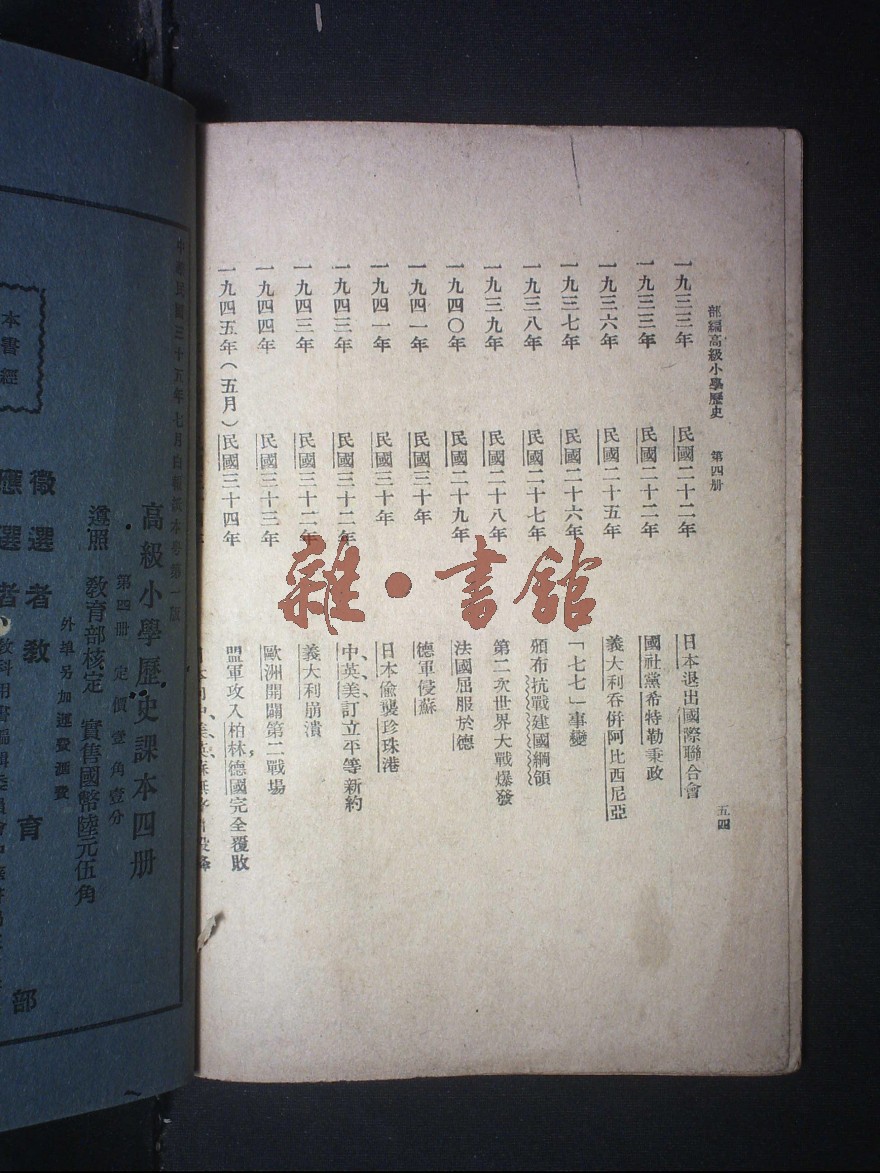 部編高級小學歷史 第四册
五四
一九三三年 民國二十二年 日本退出國際聯合會
一九三三年 民國二十二年 國社黨希特勒秉政
一九三六年 民國二十五年 義大利吞併阿比西尼亞
一九三七年 民國二十六年 「七七」事變
一九三八年 民國二十七年 頒布抗戰建國綱領
一九三九年 民國二十八年 第二次世界大戰爆發
一九四〇年 民國二十九年 法國屈服於德
一九四一年 民國三十年 德軍侵蘇
一九四一年 民國三十年 日本偷襲珍珠港
一九四三年 民國三十二年 中、英、美訂立平等新約
一九四三年 民國三十二年 義大利崩潰
一九四四年 民國三十三年 歐洲開闢第二戰場
一九四五年(五月) 民國三十四年 盟軍攻入柏林,德國完全覆敗
雜·書館
中華民國三十五年七月白報紙本第一版
高級小學歷史課本四册
第四册 定價壹角壹分
遵照 教育部核定 實售國幣陸元伍角
外埠另加運費滙費
本書經
徵選者教育部
應選者